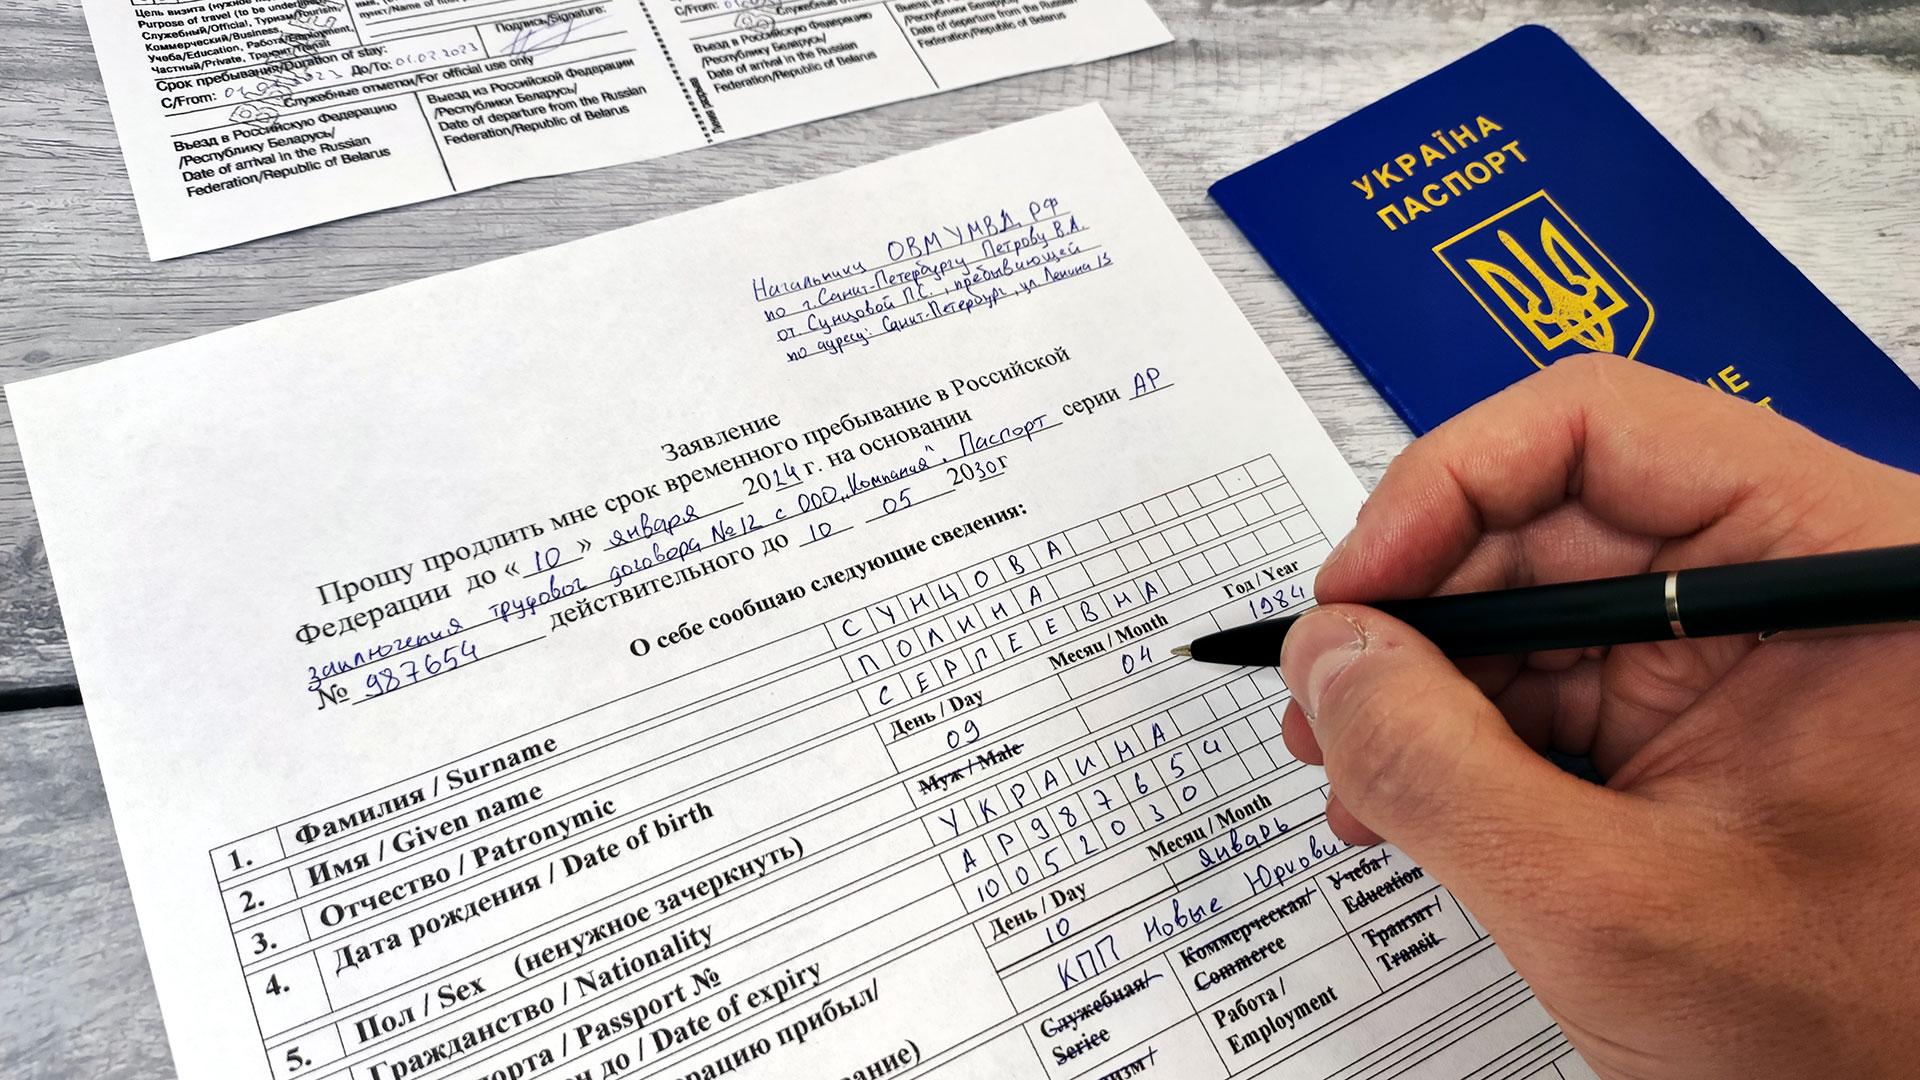 Цель визита (нужное
Purpose of travel (to be underlined
Служебный/Official, Туризм/Tourism,
Коммерческий/Business,
Учеба/Education, Работа/Employment,
Частный/Private, Транзит/Transit
Срок пребывания/Duration of stay:
С/From: До/To: 01.02.2023
Подпись/Signature:
Служебные отметки/For official use only
Въезд в Российскую Федерацию
/Республику Беларусь/
Date of arrival in the Russian
Federation/Republic of Belarus
Выезд из Российской Федерации
/Республики Беларусь/
Date of departure from the Russian
Federation/Republic of Belarus
С/From:
Въезд в Российскую Федерацию
/Республику Беларусь/
Date of arrival in the Russian
Federation/Republic of Belarus
/Республики Беларусь/
Date of departure from the Russian
Federation/Republic of Belarus
УКРАЇНА
ПАСПОРТ
Начальнику ОВМ УМВД РФ
по г. Санкт-Петербургу Петрову В.А.
от Сунцовой П.С., пребывающей
по адресу: Санкт-Петербург, ул. Ленина 13
Заявление
Прошу продлить мне срок временного пребывание в Российской
Федерации до « 10 » января 2024 г. на основании
заключения трудовог договора №12 с ООО „Компания". Паспорт серии АР
№ 987654 действительного до 10 05 2030г
О себе сообщаю следующие сведения:
1. Фамилия / Surname СУНЦОВА
2. Имя / Given name ПОЛИНА
3. Отчество / Patronymic СЕРГЕЕВНА
4. Дата рождения / Date of birth День / Day Месяц / Month Год / Year
09 04 1984
5. Пол / Sex (ненужное зачеркнуть) Муж / Male
Гражданство / Nationality УКРАИНА
порта / Passport № АР987654
н до / Date of expiry 10052030
рацию прибыл/ День / Day Месяц / Month
10 январь
КПП Новые Юркови
вание) Служебная/ Коммерческая/ Учеба/
Serice Commerce Education
изм/ Работа / Транзит/
Employment Transit